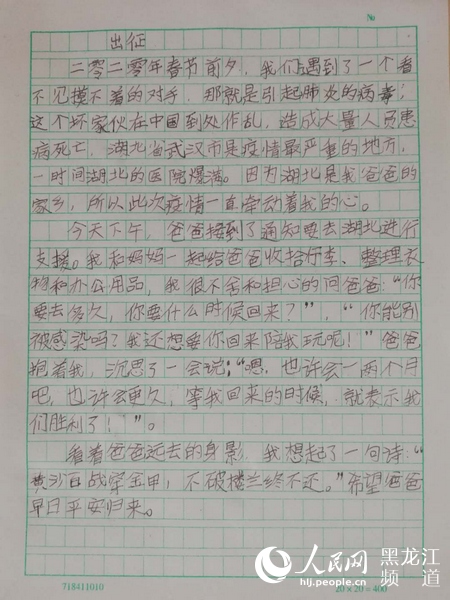 №
出征
二零二零年春节前夕，我们遇到了一个看
不见摸不着的对手，那就是引起肺炎的病毒；
这个坏家伙在中国到处作乱，造成大量人员患
病死亡，湖北省武汉市是疫情最严重的地方，
一时间湖北的医院爆满。因为湖北是我爸爸的
家乡，所以此次疫情一直牵动着我的心。
今天下午，爸爸接到了通知要去湖北进行
支援。我和妈妈一起给爸爸收拾行李、整理衣
物和办公用品，我很不舍和担心的问爸爸：“你
要去多久，你要什么时候回来？”，“你能别
被感染吗？我还想要你回来陪我玩呢！”爸爸
抱着我，沉思了一会说：“嗯，也许会一两个月
吧，也许会更久，等我回来的时候，就表示我
们胜利了！”。
看着爸爸远去的身影，我想起了一句诗：“
黄沙百战穿金甲，不破楼兰终不还。”希望爸爸
早日平安归来。
人民网 黑龙江频道
hlj.people.com.cn
718411010
20×20=400